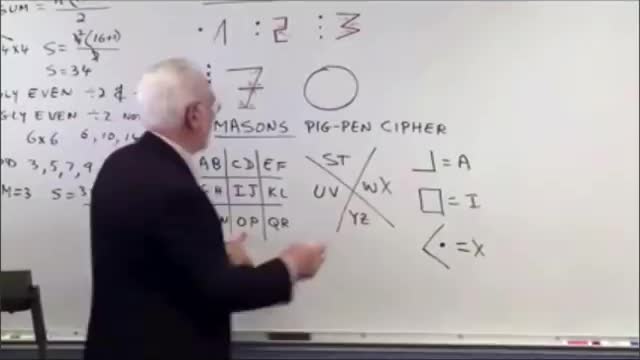 SUM =
2
4x4 S = 4²(16+1)
2
S = 34
GLY EVEN ÷2
GLY EVEN ÷2
6x6 6, 10, 14
3, 5, 7, 9
M=3 S =
1 2 3
7
MASONS PIG-PEN CIPHER
AB CD EF
GH IJ KL
N OP QR
ST
UV WX
YZ
= A
= I
= X